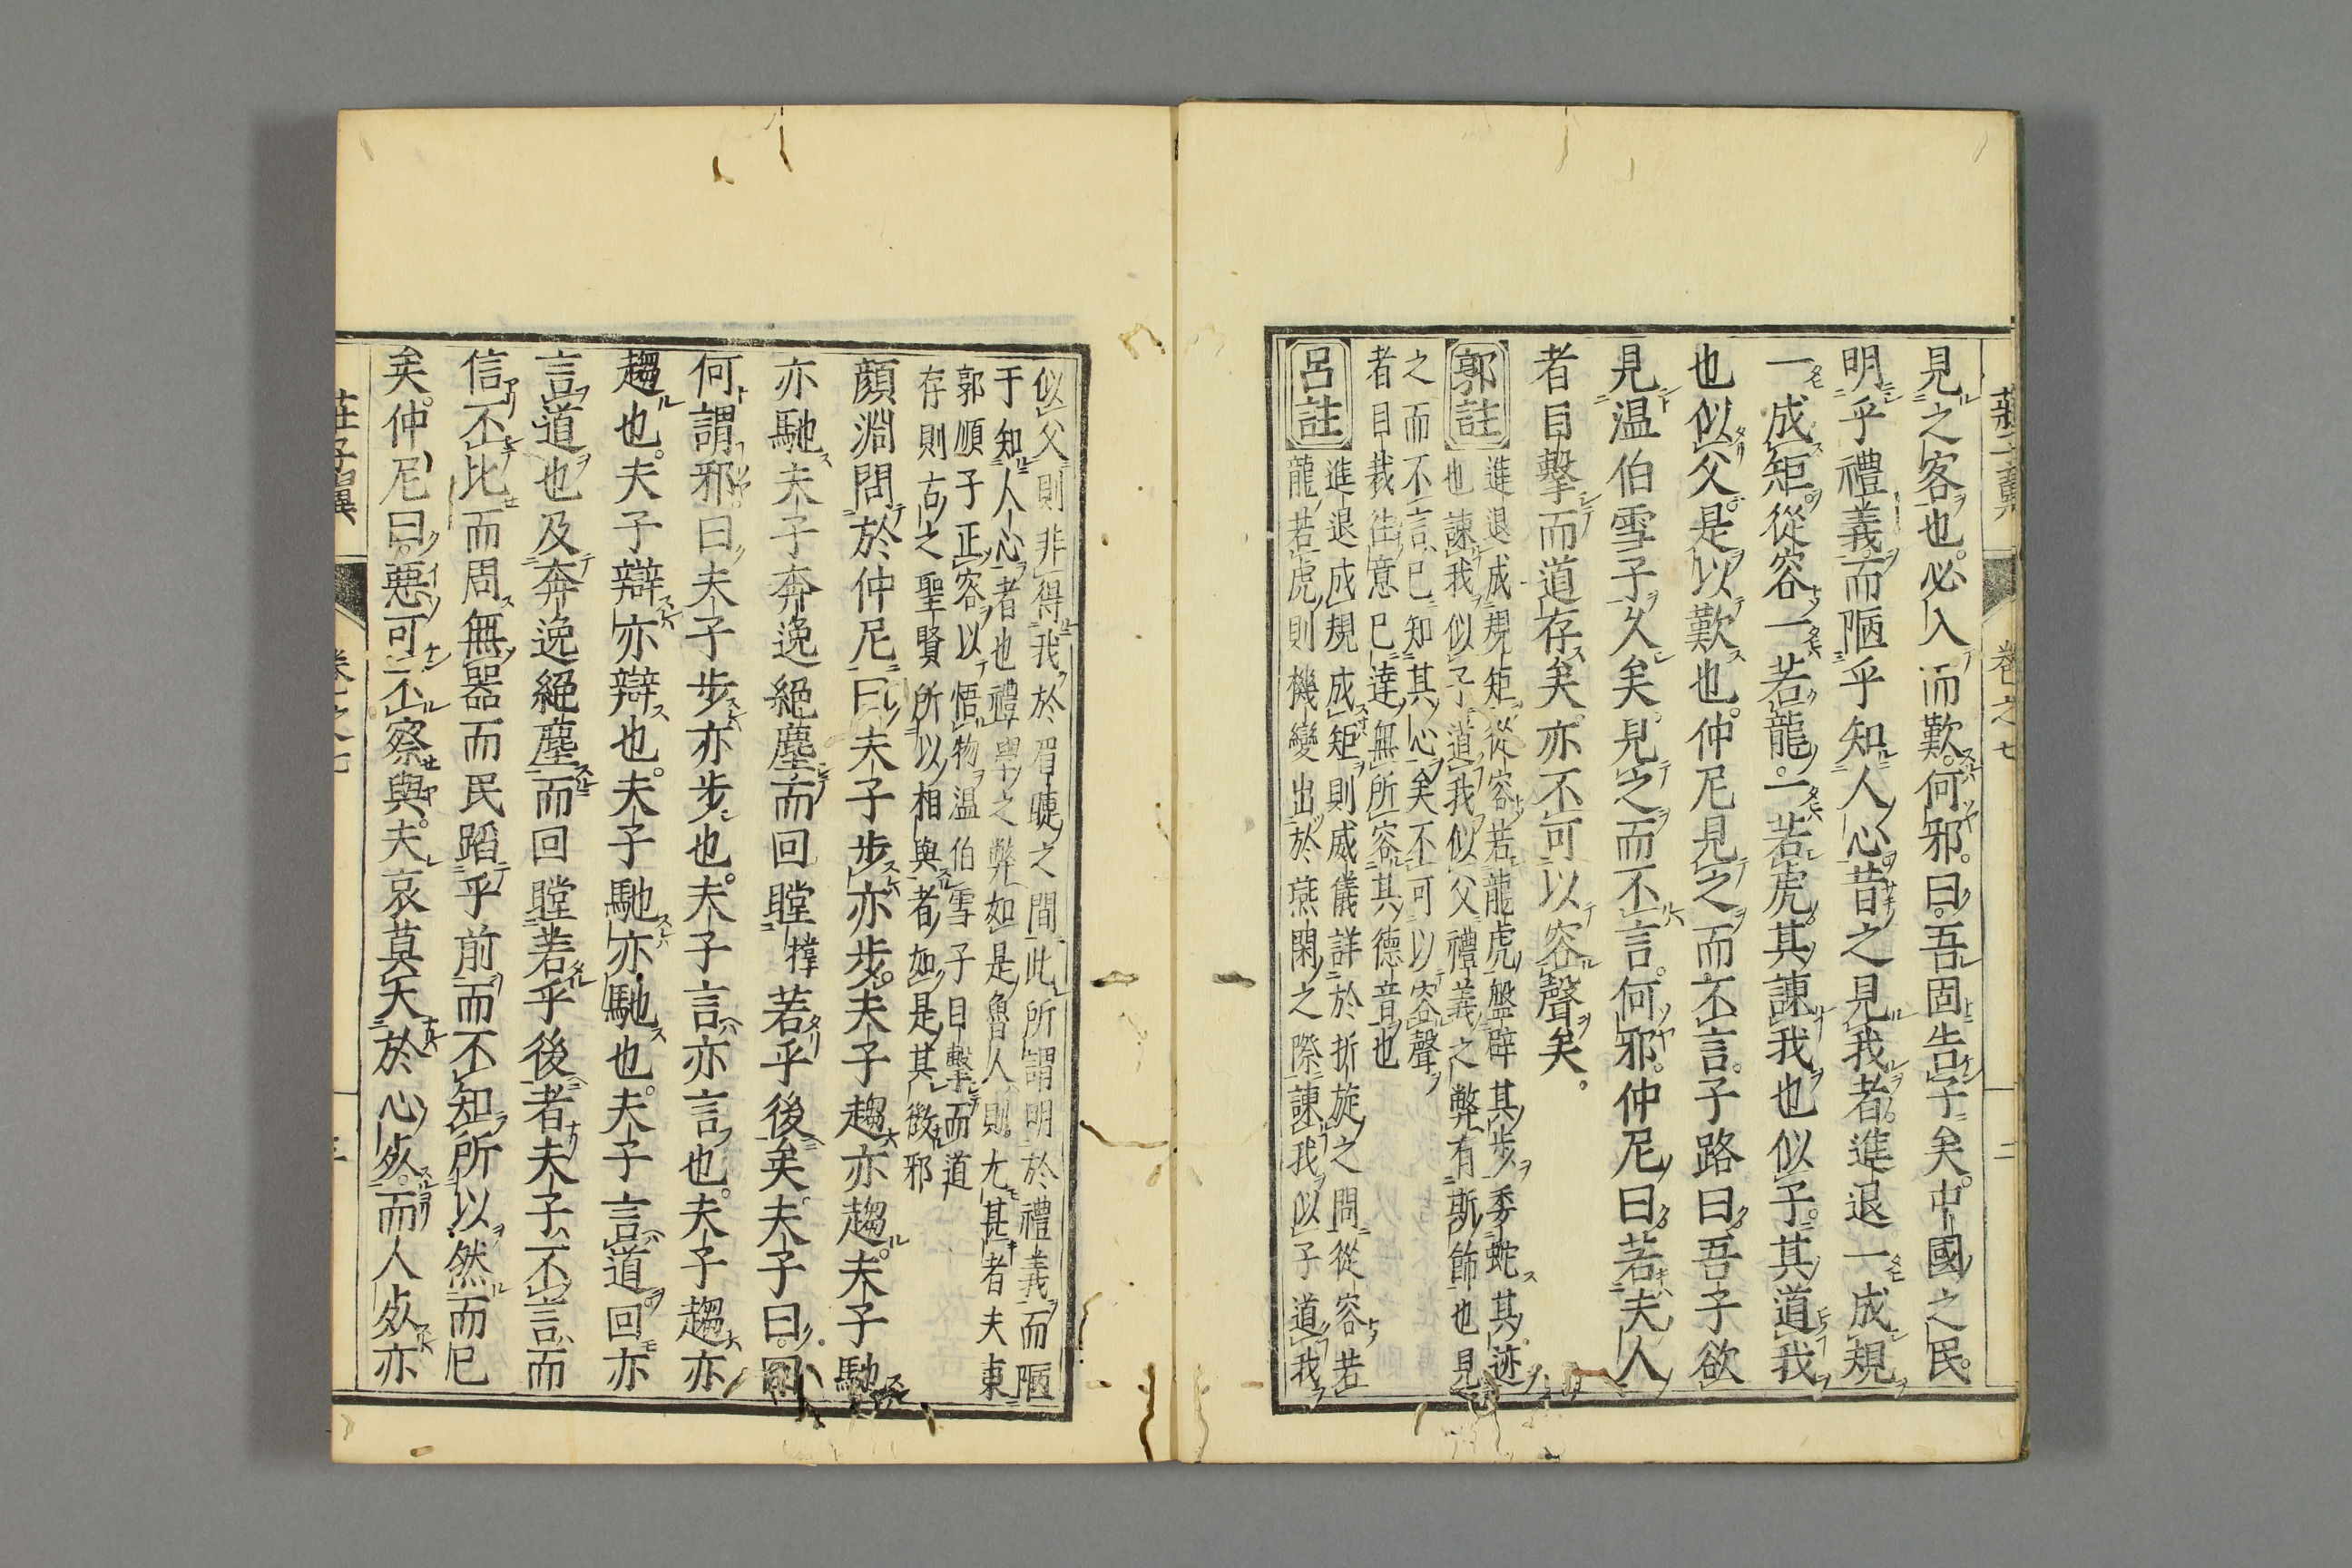 莊子翼 卷之七 二
見之客也必入而歎何邪曰吾固告子矣中國之民
明乎禮義而陋乎知人心昔之見我者進退一成規
一成矩從容一若龍一若虎其諫我也似子其道我
也似父是以歎也仲尼見之而不言子路曰吾子欲
見温伯雪子久矣見之而不言何邪仲尼曰若夫人
者目擊而道存矣亦不可以容聲矣
郭註 進退成規矩從容若龍虎盤辟其步委蛇其迹
也諫我似子道我似父禮義之弊有斯飾也見
之而不言已知其心矣不可以容聲
者目裁往意已達無所容其德音也
呂註 進退成規成矩則威儀詳於折旋之間從容若
龍若虎則機變出於燕閑之際諫我似子道我
似父則非得我於眉睫之間此所謂明於禮義而陋
于知人心者也禮學之弊如是魯人則尤甚者夫東
郭順子正容以悟物温伯雪子目擊而道
存則古之聖賢所以相與者如是其微邪
顔淵問於仲尼曰夫子步亦步夫子趨亦趨夫子馳
亦馳夫子奔逸絕塵而回瞠撑若乎後矣夫子曰回
何謂邪曰夫子步亦步也夫子言亦言也夫子趨亦
趨也夫子辯亦辯也夫子馳亦馳也夫子言道回亦
言道也及奔逸絕塵而回瞠若乎後者夫子不言而
信不比而周無器而民蹈乎前而不知所以然而已
矣仲尼曰惡可不察與夫哀莫大於心死而人死亦
莊子翼 卷之七